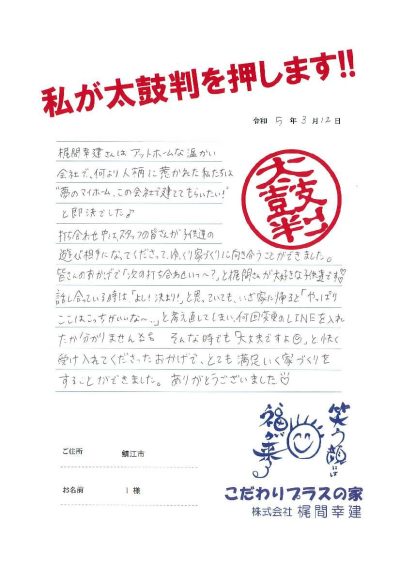 私が太鼓判を押します!!
令和 5 年 3 月 12 日
梶間幸建さんは アットホームな温かい
会社で、何より人柄に惹かれた私たちは
"夢のマイホーム、この会社で建ててもらいたい!"
と即決でした♪
打ち合わせ中は、スタッフの皆さんが子供達の
遊び相手になってくださって、ゆっくり家づくりに向き合うことができました。
皆さんのおかげで「次の打ち合わせいつ〜?」と梶間さんが大好きな子供達です♡
話し合っている時は「よし!決まり!」と思っていても、いざ家に帰ると「やっぱり
ここはこっちがいいな〜…」と考え直してしまい、何回変更のLINEを入れ
たか分かりません
そんな時でも「大丈夫ですよ☺」と快く
受け入れてくださったおかげで、とても満足いく家づくりを
することができました。ありがとうございました♡
太鼓判!!
ご住所 鯖江市
お名前 I 様
笑う顔には
福が来る
こだわりプラスの家
株式会社 梶間幸建